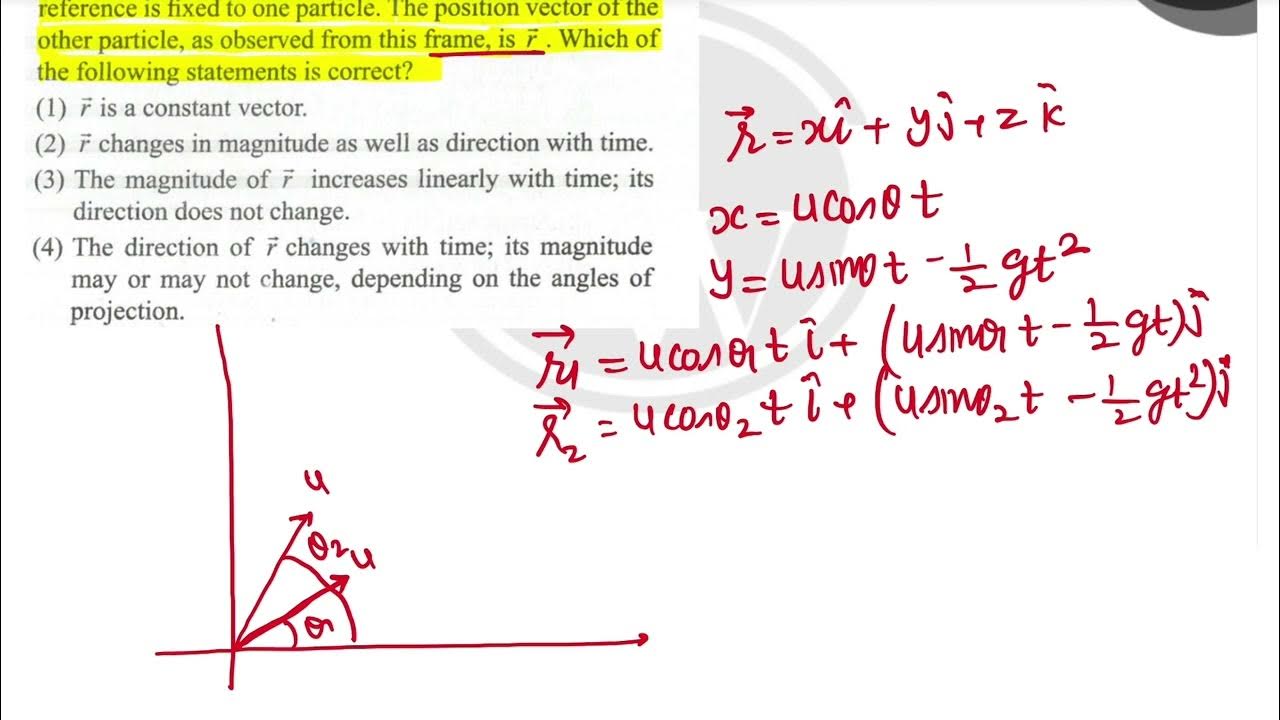 reference is fixed to one particle. The position vector of the
other particle, as observed from this frame, is r⃗ . Which of
the following statements is correct?
(1) r⃗ is a constant vector.
(2) r⃗ changes in magnitude as well as direction with time.
(3) The magnitude of r⃗ increases linearly with time; its
direction does not change.
(4) The direction of r⃗ changes with time; its magnitude
may or may not change, depending on the angles of
projection.
r⃗ = xî + yĵ + z k̂
x = u cosθ t
y = u sinθ t - 1/2 gt²
r⃗₁ = u cosθ₁ t î + (u sinθ₁ t - 1/2 gt)ĵ
r⃗₂ = u cosθ₂ t î + (u sinθ₂ t - 1/2 gt²)ĵ
u
θ₂ u
θ₁